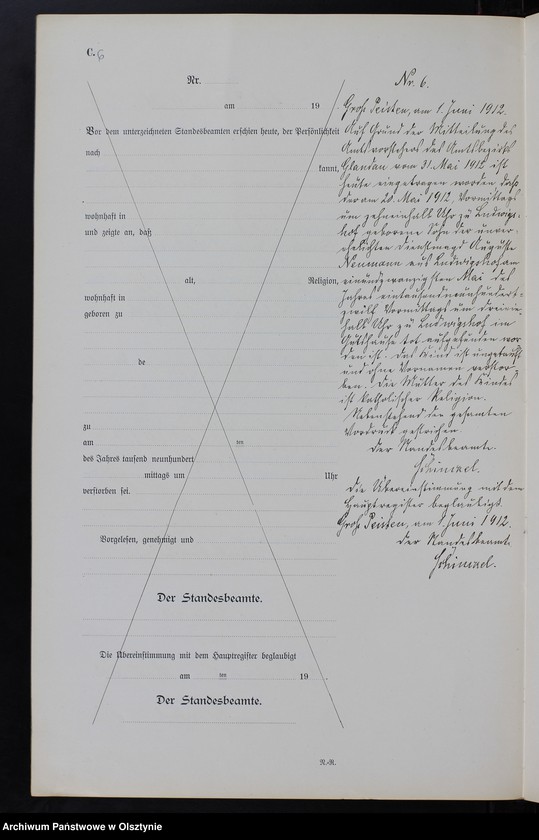 C. 6
Nr.
am 19
Vor dem unterzeichneten Standesbeamten erschien heute, der Persönlichkeit
nach
kannt,
wohnhaft in
und zeigte an, daß
alt, Religion,
wohnhaft in
geboren zu
de
zu
am ten
des Jahres tausend neunhundert
mittags um Uhr
verstorben sei.
Vorgelesen, genehmigt und
Der Standesbeamte.
Die Übereinstimmung mit dem Hauptregister beglaubigt
am ten 19
Der Standesbeamte.
N.-R.
Nr. 6.
Groß Peisten, am 1. Juni 1912.
Auf Grund der Mitteilung des
Amtsvorstehers des Amtsbezirks
Glandau vom 31. Mai 1912 ist
heute eingetragen worden, daß
der am 20. Mai 1912, Vormittags
um zehneinhalb Uhr zu Ludwigs-
hof geborene Sohn der unver-
ehelichten Dienstmagd Auguste
Neumann aus Ludwigshof am
einundzwanzigsten Mai des
Jahres eintausendneunhundert-
zwölf Vormittags um dreiein-
halb Uhr zu Ludwigshof im
Gutshause tot aufgefunden wor
den ist. Das Kind ist ungetauft
und ohne Vornamen verstor-
ben. Die Mutter des Kindes
ist katholischer Religion.
Nebenstehend die gesamten
Vordruck gestrichen
Der Standesbeamte.
Schimael.
Die Übereinstimmung mit dem
Hauptregister beglaubigt.
Groß Peisten, am 1. Juni 1912.
Der Standesbeamte.
Schimael.
Archiwum Państwowe w Olsztynie